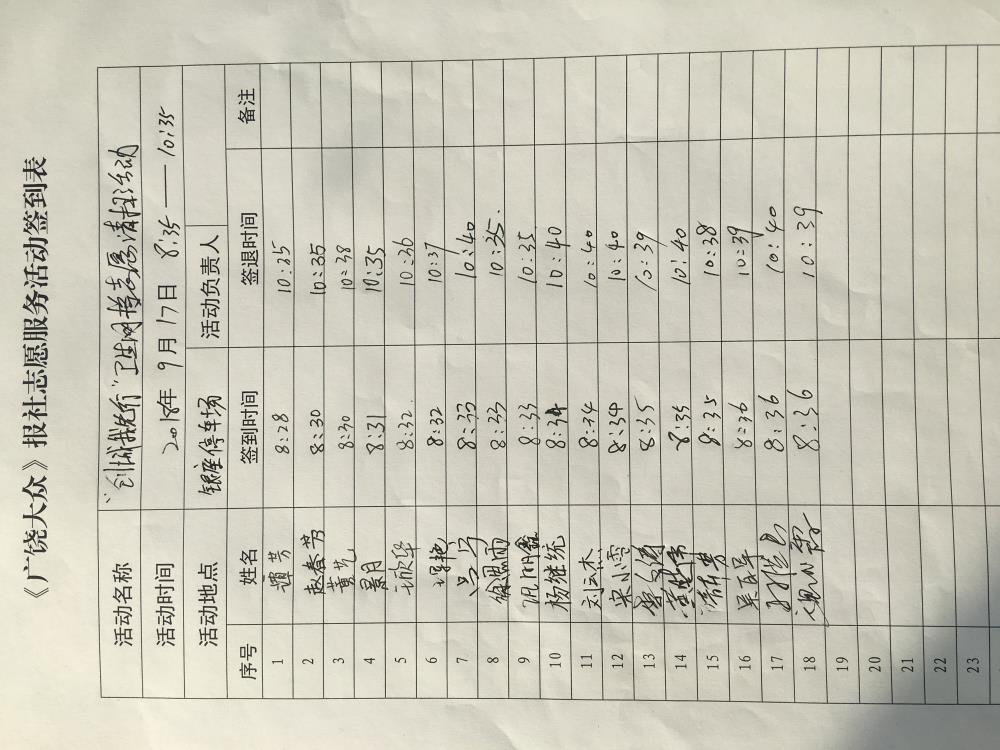 《广饶大众》报社志愿服务活动签到表
活动名称 “创城我先行”卫生网格志愿清扫活动
活动时间 2018年 9月17日 8:35——10:35
活动地点 银座停车场 活动负责人
序号 姓名 签到时间 签退时间 备注
1 谭芳 8:28 10:35
2 赵春芳 8:30 10:35
3 黄艺 8:30 10:38
4 景月 8:31 10:35
5 8:32 10:36
6 8:32 10:37
7 8:33 10:40
8 徐恩雨 8:33 10:35.
9 8:33 10:35
10 杨继统 8:34 10:40
11 刘云杰 8:34 10:40
12 宋小雪 8:34 10:40
13 8:35 10:39
14 8:35 10:40
15 8:35 10:38
16 8:36 10:39
17 8:36 10:40
18 8:36 10:39
19
20
21
22
23